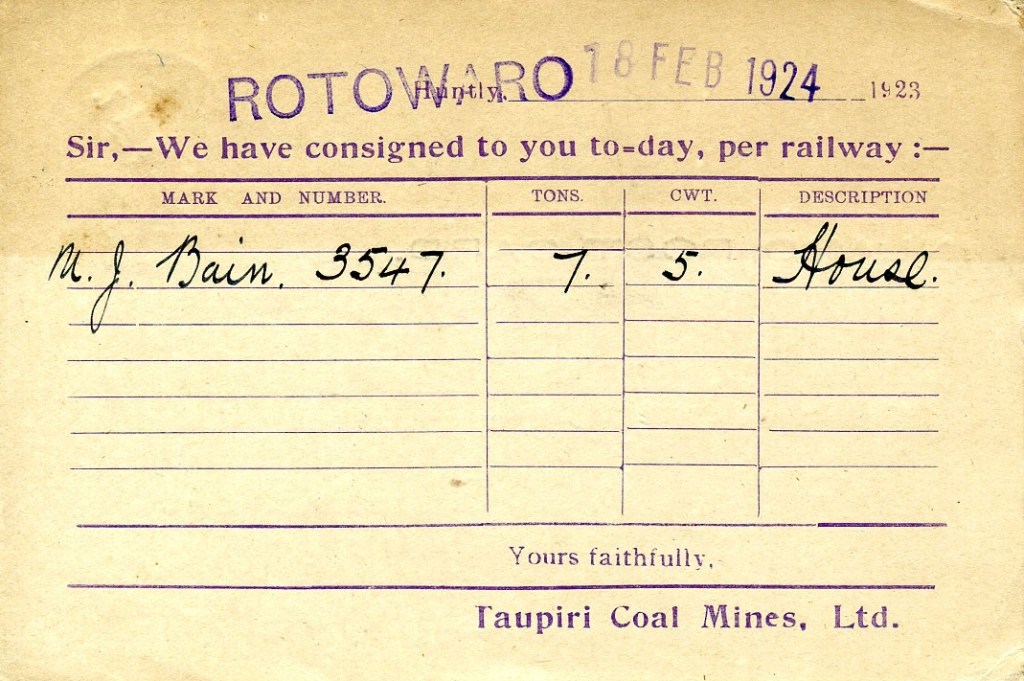 ROTOWARO Huntly, 18 FEB 1924 1923
Sir,—We have consigned to you to=day, per railway :—
MARK AND NUMBER. TONS. CWT. DESCRIPTION
M. J. Bain. 3547. 7. 5. House.
Yours faithfully,
Taupiri Coal Mines, Ltd.